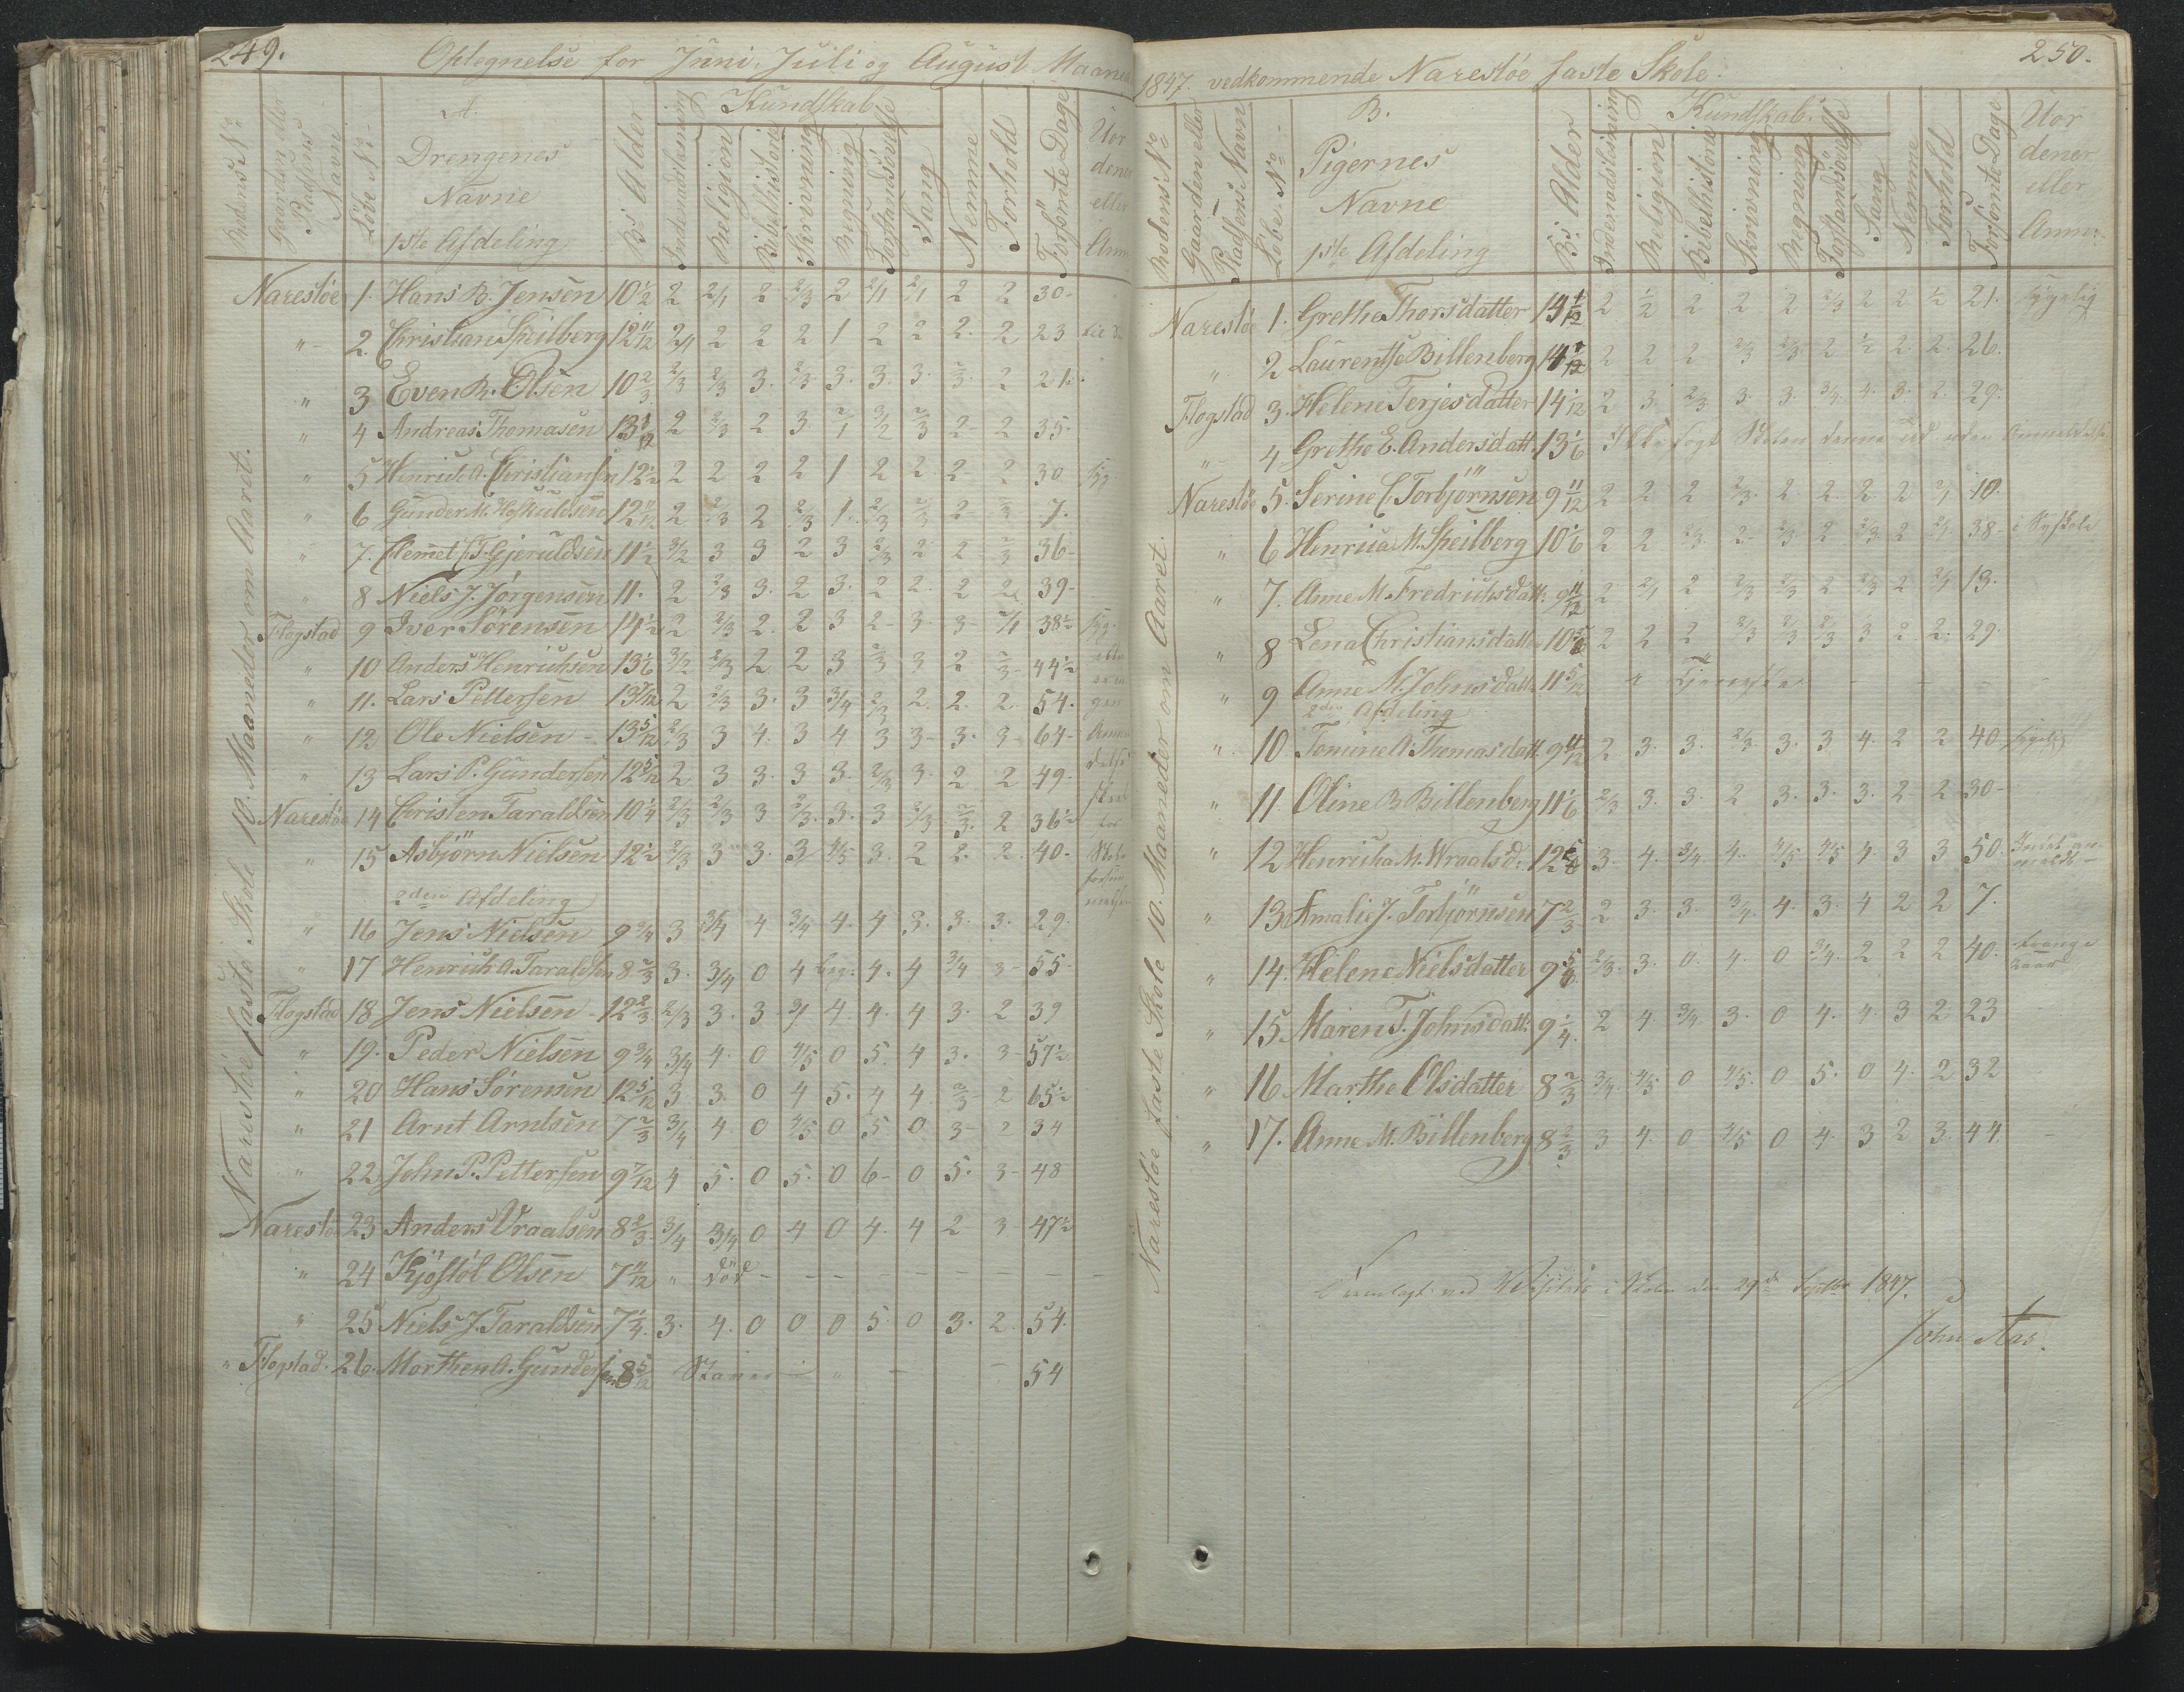 249.
Optegnelse for Juni, Juli og August Maaned
Rodens No
Gaarden eller Pladsens Navn
Löbe No
A.
Drengenes
Navne
1ste Afdeling
Alder
Indenadslæsning
Kundskab
Religion
Bibelhistorie
Skrivning
Regning
Forstandsövelse
Sang
Nemme
Forhold
Forsömte Dage
Narestöe faste Skole 10. Maaneder om Aaret.
Narestöe 1. Hans B. Jensen 10 1/2 2 2/1 2 2/3 2 2/1 2/1 2 2 30-
" 2. Christian Speilberg 12 11/12 2/1 2 2 2 1 2 2 2. 2 23
" 3 Even R. Olsen 10 2/3 2/3 2/3 3. 2/3 3. 3. 3. 2/3 2 21.
" 4 Andreas Thomasen 2 2/3 2 3 2/1 3/2 2/3 2- 2 35-
" 5 Henrich A. Christiansen 12 1/2 2 2 2 2 1 2 2 2- 2 30
" 6 Gunder M. 12 11/12 2 2/3 2 2/3 1. 2/3 2/3 2- 2/3 7.
" 7. Clemet C. T. Gjeruldsen 11 1/2 3/2 3 3 2 3 2/3 2 2 2/3 36-
" 8 Niels J. Jörgensen 11. 2 2/3 3. 2 3. 2 2. 2 2 39-
Flogstad 9 Iver Sörensen 14 1/2 2 2/3 2. 2 3 2- 3- 3- 2/1 38 1/2
" 10 Anders Henrichsen 13 1/6 3/2 2/3 2 2 3 2/3 3 2 2/3 44 1/2
" 11. Lars Pettersen 13 7/12 2 2/3 3. 3 3/4 2/3 2. 2. 2. 54.
" 12 Ole Nielsen - 13 5/12 2/3 3 4. 3 4 3 3- 3. 3- 64-
" 13 Lars P. Gundersen 12 5/12 2 3 3. 3 3. 2/3 3. 2 2 49-
Narestöe 14 Christen Taraldsen 10 1/4 2/3 2/3 3 2/3. 3. 3 2/3 2/3. 2 36 1/2
" 15 Asbjörn Nielsen 12 1/2 2/3 3 3. 3 4/5 3. 2 2. 2. 40-
2den Afdeling
" 16 Jens Nielsen 9 3/4 3 3/4 4 3/4 4. 4 3. 3. 3. 29.
" 17 Henrich A. Taraldsen 8 2/3 3. 3/4 0 4 beg: 4. 4 3/4 3- 55-
Flogstad 18 Jens Nielsen - 12 2/3 2/3 3. 3 3/4 4. 4. 4 3. 2 39
" 19. Peder Nielsen 9 3/4 3/4 4. 0 4/5 0 5. 4 3. 3- 57 1/2
" 20 Hans Sörensen 12 5/12 3. 3. 0 4 5. 4 4 2/3 2 65 1/2
" 21 Arnt Arntsen 7 2/3 3/4 4. 0 4/5 0 5 0 3- 2 34
" 22 John P. Pettersen 9 7/12 4 5. 0 5. 0 6- 0 5. 3- 48
Narestöe 23 Anders Vraalsen 8 2/3 3/4 3/4 0 4 0 4. 4 2 3 47 1/2
" 24 Kjöstöl Olsen 7 11/12 " död - - - - - - - - -
" 25 Niels J. Taraldsen 7 1/4. 3. 4. 0 0 0 5. 0 3. 2. 54.
" Flogstad. 26. Morthen A. Gundersen 8 5/12 54
250.
1847. vedkommende Narestöe faste Skole.
Rodens No
Gaarden eller Pladsens Navn
Löbe No
B.
Pigernes
Navne
1ste Afdeling
Alder
Indenadslæsning
Kundskab.
Religion
Bibelhistorie
Skrivning
Regning
Forstandsövelse
Sang
Nemme
Forhold
Forsömte Dage
Uor
dener
eller
Anm:
Narestöe faste Skole 10. Maaneder om Aaret.
Narestöe 1. Grethe Thorsdatter 2 1/2 2 2 2 2/3 2 2 1/2 21. sygelig
" 2 Laurentse Billenberg 2 2 2 2/3 2/3 2 1/2 2. 2. 26.
Flogstad 3. Helene Terjesdatter 14 1/12 2 3 2/3 3. 3. 3/4 4. 3. 2. 29.
" 4 Grethe E. Andersdatt. 13 1/6 Ikke søgt Skolen denne Tid uden Anmeldelse
Narestöe 5. Serine C. Torbjörnsen 9 11/12 2 2 2 2/3. 2. 2. 2. 2 2/1 10.
" 6 Henrica M. Speilberg 10 1/6 2 2 2/3. 2- 2/3. 2 2/3. 2 2/1. 38- i Syskole
" 7. Anne M. Fredrichsdatt. 9 11/12 2 2/1 2 2/3 2/3 2 2/3 2 2/1 13.
" 8 Lena Christiansdatter 2 2 2 2/3 2/3 2/3 3 2. 2. 29.
" 9 Anne M. Johnsdatt. 11 5/12 " i Tjeneste - - - -
2den Afdeling
" 10 Tomine A. Thomasdatt. 2 3. 3. 2/3. 3. 3. 4. 2 2 40 sygelig
" 11. Oline B. Billenberg 11 1/6 2/3 3. 3. 2 3. 3. 3. 2 2 30-
" 12 Henricha M. Wraalsd. 3. 4. 3/4 4. 4/5 4/5 4 3 3 50.
" 13 Amalie J. Torbjörnsen 7 2/3 2 3. 3. 3/4. 4. 3. 4 2 2 7.
" 14. Helene Nielsdatter 2/3. 3. 0. 4. 0 3/4. 2 2 2 40. trange Kaar
" 15. Maren T. Johnsdatt. 9 1/4. 2 4. 3/4. 3. 0 4. 4. 3 2 23
" 16 Marthe Olsdatter 8 2/3 3/4. 4/5 0 4/5. 0 5. 0 4. 2 32
" 17. Anne M. Billenberg 8 2/3 3 4. 0 4/5 0 4. 3 2 3. 44.
Fremlagt ved Visitats i Skolen den 29de Septbr 1847.
John Aas.